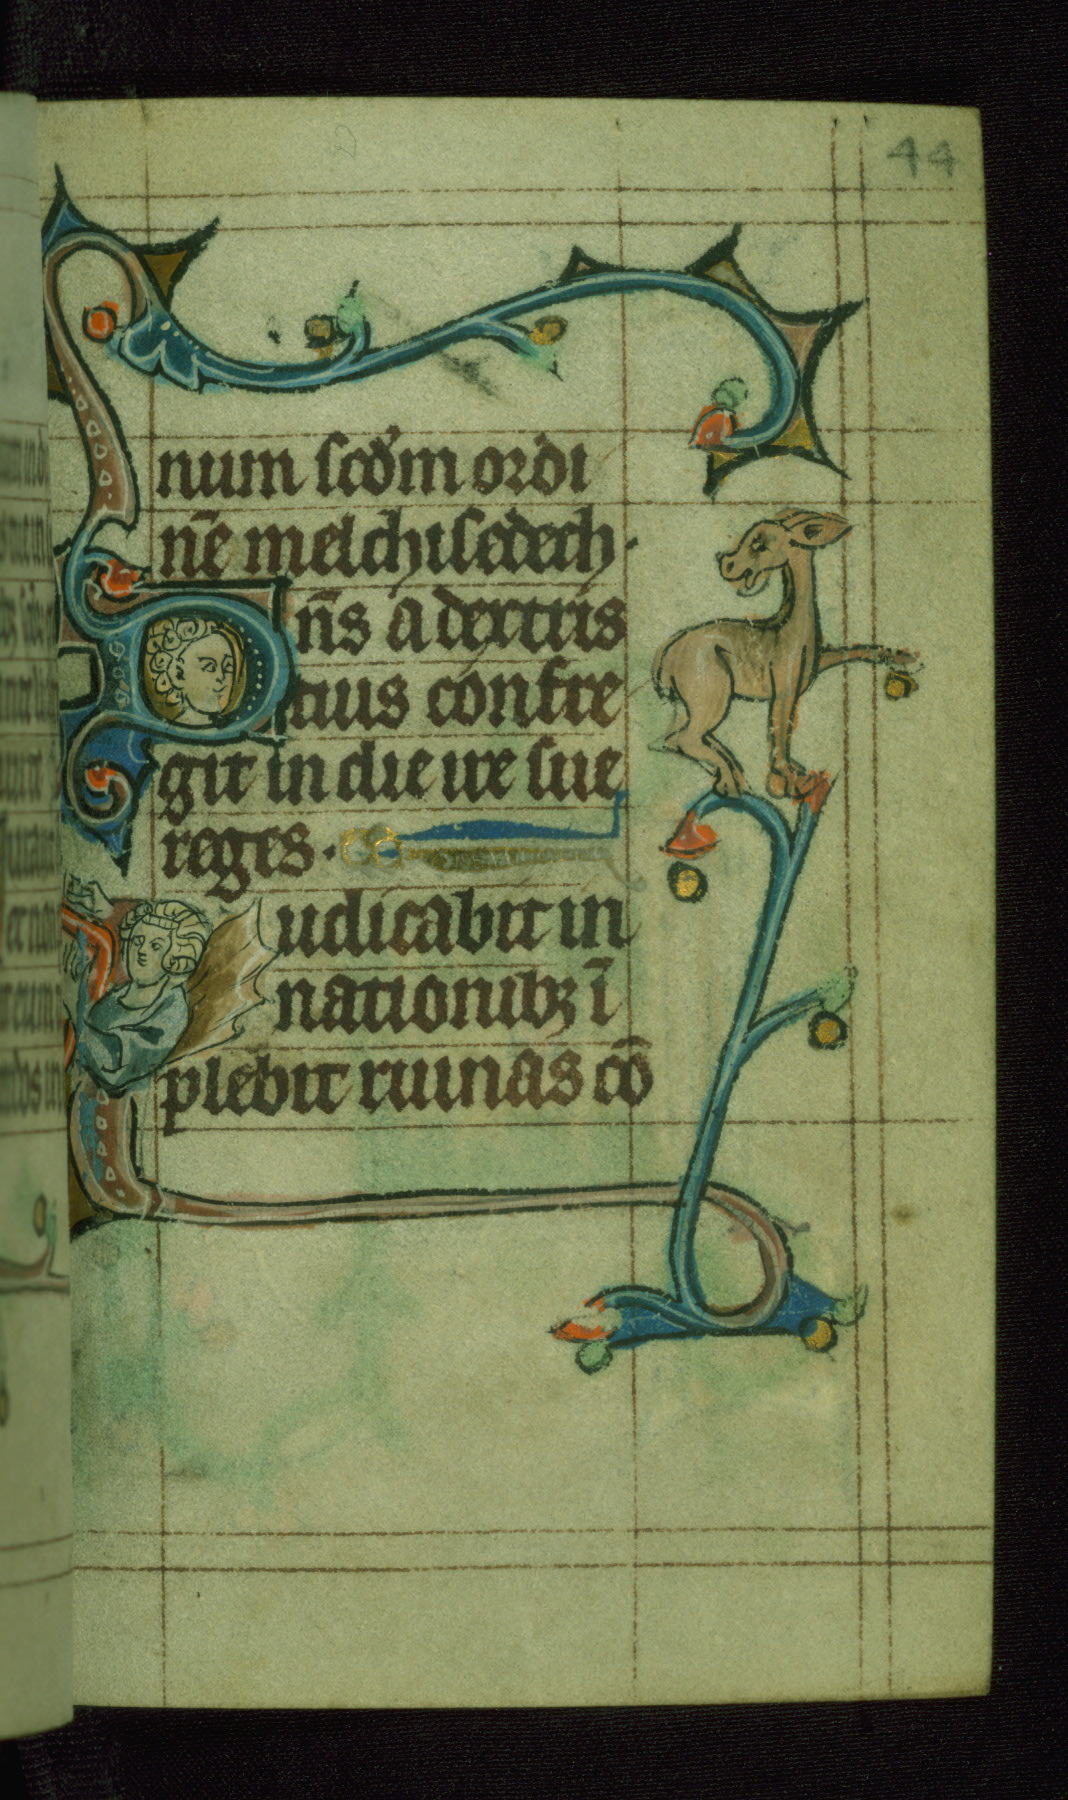 44
num scd'm ordi
nē melchisedech·
Dn̄s a dextris
tuus confre
git in die ire sue
reges·
Iudicabit in
nationibꝫ ī
plebit ruinas cō